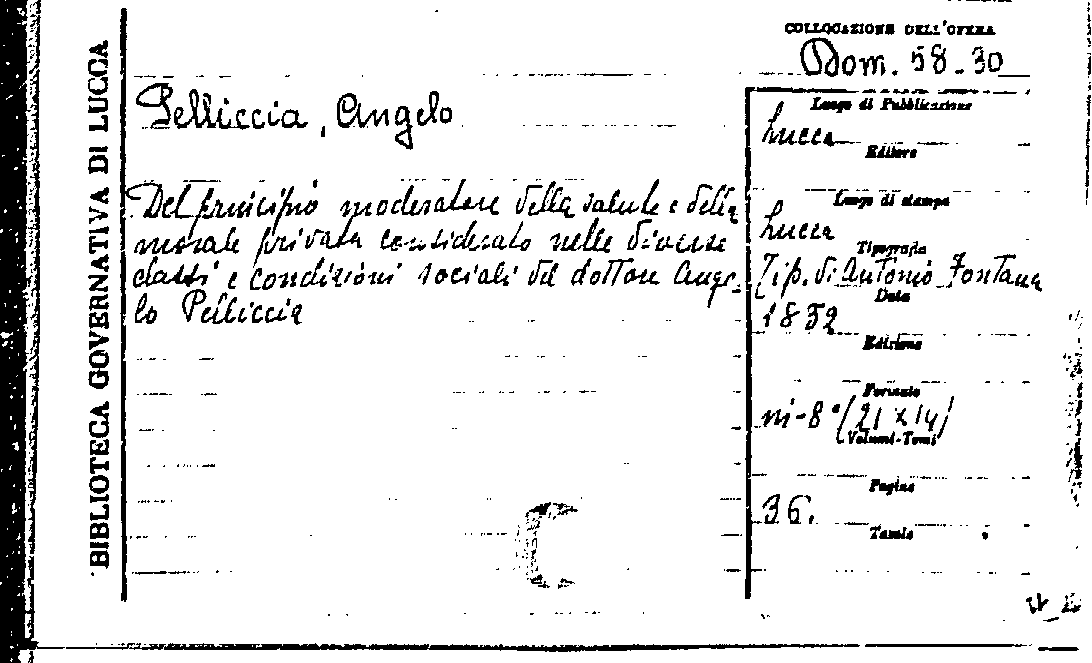 BIBLIOTECA GOVERNATIVA DI LUCCA
COLLOCAZIONE DELL'OPERA
Dom. 58-30
Pelliccia, Angelo
Del principio moderatore della salute e della
morale privata considerato nelle diverse
classi e condizioni sociali del dottore Ange-
lo Pelliccia
Luogo di Pubblicazione
Lucca
Editore
Luogo di stampa
Lucca
Tipografia
Tip. di Antonio Fontana
Data
1832
Edizione
Formato
in-8° (21 x 14)
Volumi-Tomi
Pagine
36.
Tavole